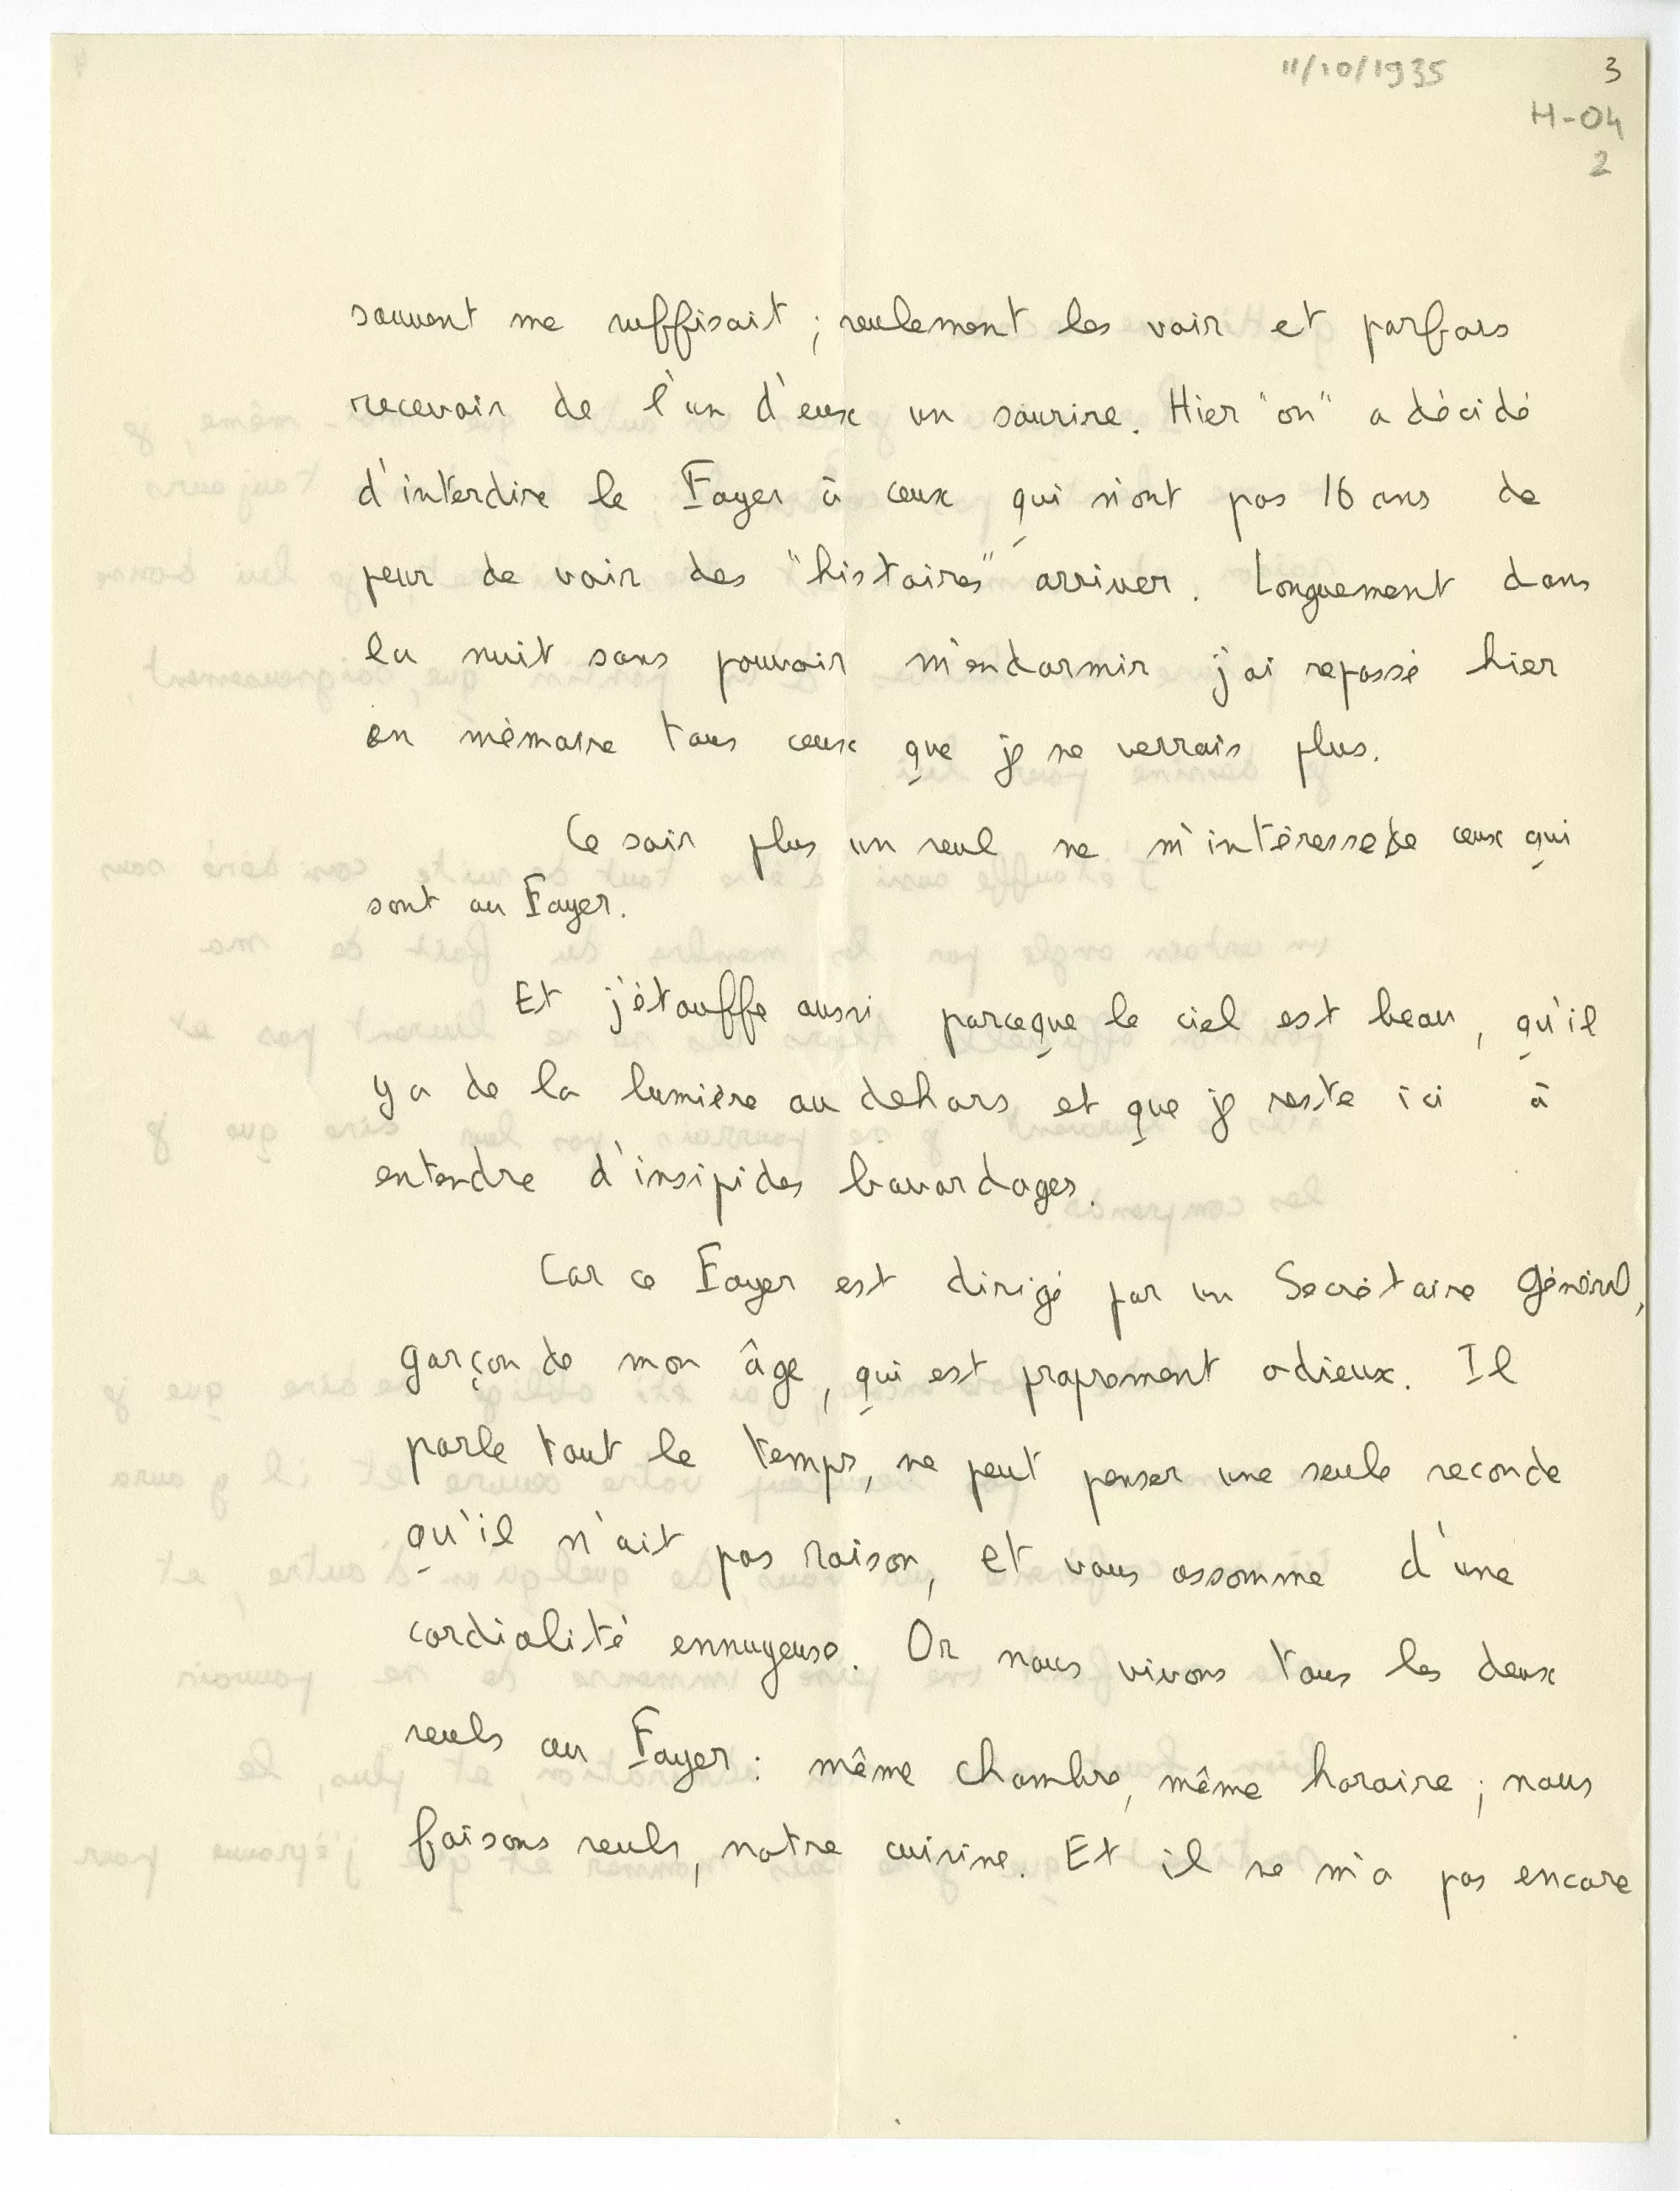 11/10/1935
3
H-04
2
souvent me suffisait ; seulement les voir et parfois
recevoir de l'un d'eux un sourire. Hier "on" a décidé
d'interdire le Foyer à ceux qui n'ont pas 16 ans de
peur de voir des "histoires" arriver. Longuement dans
la nuit sans pouvoir m'endormir j'ai repassé hier
en mémoire tous ceux que je ne verrais plus.
Ce soir plus un seul ne m'intéresse de ceux qui
sont au Foyer.
Et j'étouffe aussi parceque le ciel est beau, qu'il
y a de la lumière au dehors et que je reste ici à
entendre d'insipides bavardages.
Car ce Foyer est dirigé par un Secrétaire Général,
garçon de mon âge, qui est proprement odieux. Il
parle tout le temps, ne peut penser une seule seconde
qu'il n'ait pas raison, et vous assomme d'une
cordialité ennuyeuse. Or nous vivons tous les deux
seuls au Foyer : même chambre, même horaire ; nous
faisons seuls, notre cuisine. Et il ne m'a pas encore